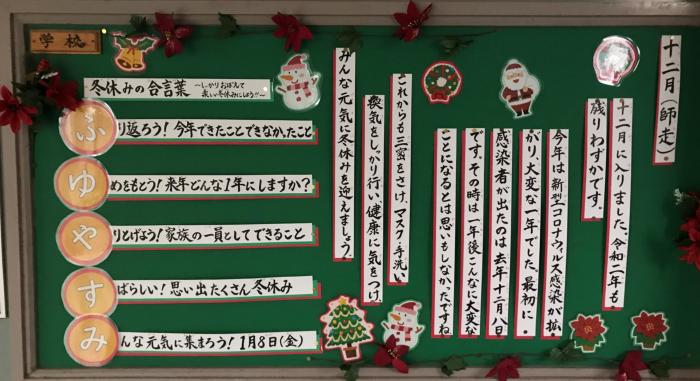 学校
十二月(師走)
十二月に入りました。令和二年も
残りわずかです。
今年は新型コロナウィルス感染が拡
がり、大変な一年でした。最初に
感染者が出たのは去年十二月八日
です。その時は一年後こんなに大変な
ことになるとは思いもしなかったですね
これからも三密をさけ、マスク・手洗い
換気をしっかり行い、健康に気をつけ、
みんな元気に冬休みを迎えましょう
冬休みの合言葉 ~しっかりおぼえて
楽しい冬休みにしよう!!~
ふり返ろう!今年できたことできなかったこと
ゆめをもとう!来年どんな1年にしますか?
やりとげよう!家族の一員としてできること
すばらしい!思い出たくさん冬休み
みんな元気に集まろう!1月8日(金)